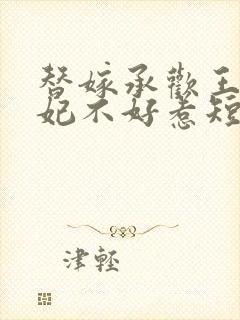 替嫁承歡王
妃不好惹短
津輕